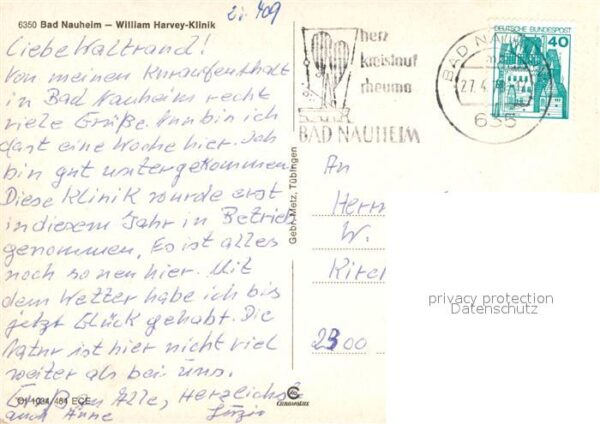 Zi. 409
6350 Bad Nauheim – William Harvey-Klinik
Liebe Waltraud!
Von meinen Kuraufenthalt
in Bad Nauheim recht
viele Grüße. Nun bin ich
fast eine Woche hier. Ich
bin gut untergekommen.
Diese Klinik wurde erst
in diesem Jahr in Betrieb
genommen. Es ist alles
noch so neu hier. Mit
dem Wetter habe ich bis
jetzt Glück gehabt. Die
Natur ist hier nicht viel
weiter als bei uns.
Grüß an Alle, Herzlichst
auch Änne
Gebr. Metz, Tübingen
herz
kreislauf
rheuma
BAD NAUHEIM
BAD NAU
27.4.
635
DEUTSCHE BUNDESPOST
40
An
Herrn
W.
Kirch
2300
privacy protection
Datenschutz